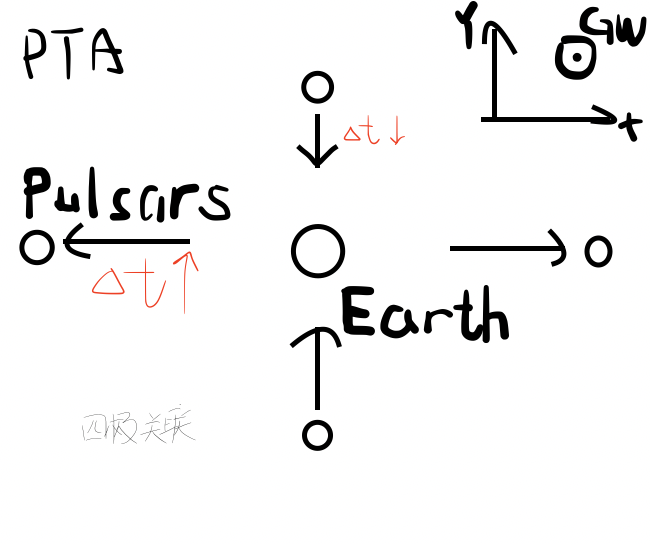 PTA
Y
GW
x
Δt↓
Pulsars
Δt↑
Earth
四极关联